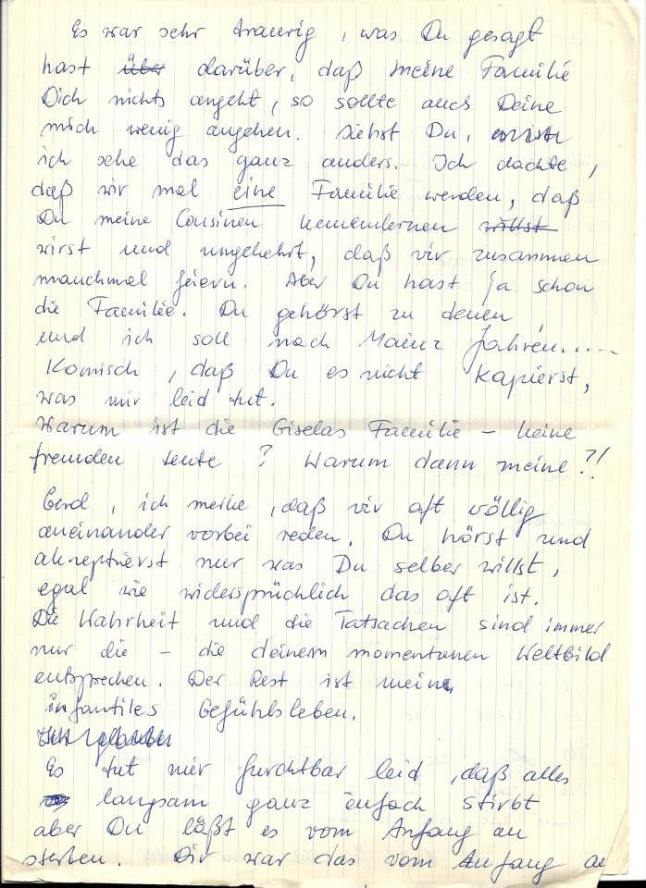 Es war sehr traurig, was Du gesagt
hast über darüber, daß meine Familie
Dich nichts angeht, so sollte auch Deine
mich wenig angehen. Siehst Du,
ich sehe das ganz anders. Ich dachte,
daß wir mal eine Familie werden, daß
Du meine Cousinen kennenlernen willst
wirst und umgekehrt, daß wir zusammen
manchmal feiern. Aber Du hast ja schon
die Familie. Du gehörst zu denen
und ich soll nach Mainz fahren.....
Komisch, daß Du es nicht kapierst,
was mir leid tut.
Warum ist die Giselas Familie – keine
fremden Leute? Warum dann meine?!
Gerd, ich merke, daß wir oft völlig
aneinander vorbei reden. Du hörst und
akzeptierst nur was Du selber willst,
egal wie widersprüchlich das oft ist.
Die Wahrheit und die Tatsachen sind immer
nur die – die deinem momentanen Weltbild
entsprechen. Der Rest ist mein
infantiles Gefühlsleben.
Es tut mir furchtbar leid, daß alles
langsam ganz einfach stirbt
aber Du läßt es vom Anfang an
sterben. Dir war das vom Anfang an